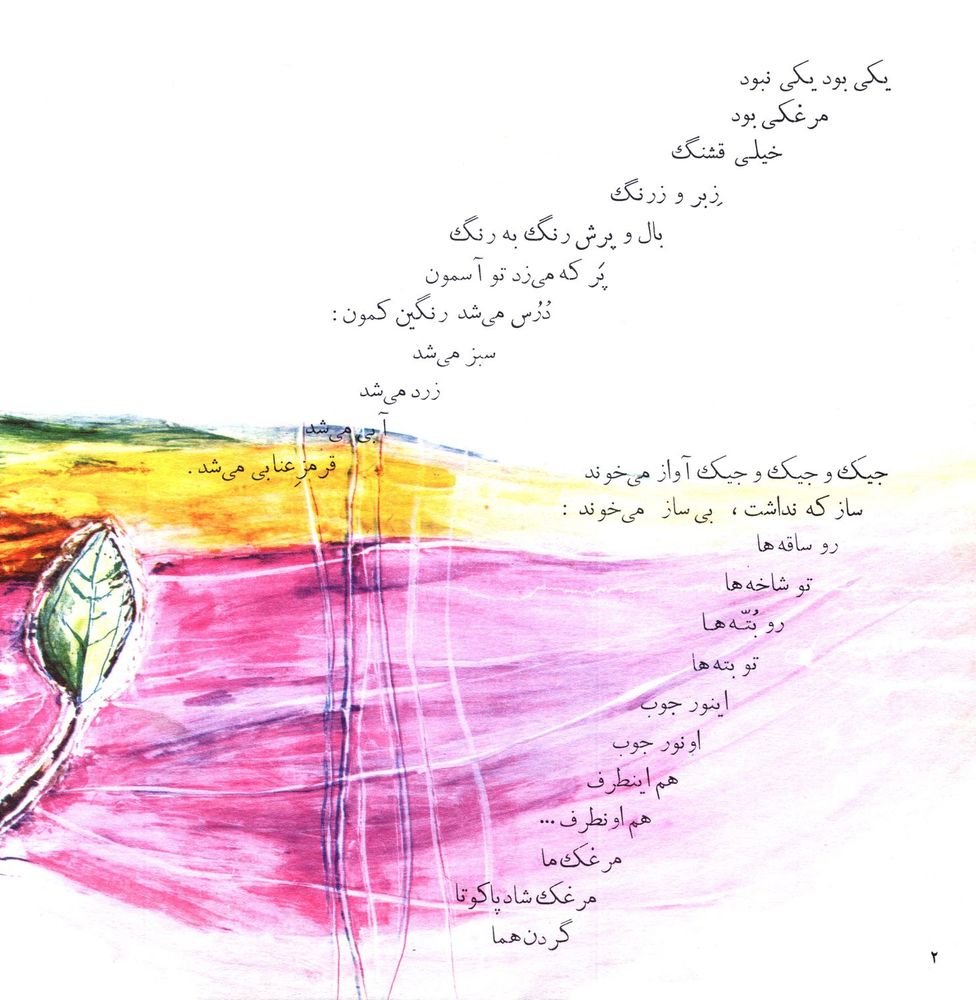 یکی بود یکی نبود
مرغکی بود
خیلی قشنگ
زِبر و زرنگ
بال و پرش رنگ به رنگ
پَر که می‌زد تو آسمون
دُرُس می‌شد رنگین کمون :
سبز می‌شد
زرد می‌شد
آبی می‌شد
قرمزِ عنابی می‌شد .
جیک و جیک و جیک آواز می‌خوند
ساز که نداشت ، بی ساز می‌خوند :
رو ساقه‌ها
تو شاخه‌ها
رو بُتّه‌ها
تو بته‌ها
اینور جوب
اونور جوب
هم اینطرف
هم اونطرف ...
مرغک ما
مرغک شاد پا کوتا
گردن هما
۲